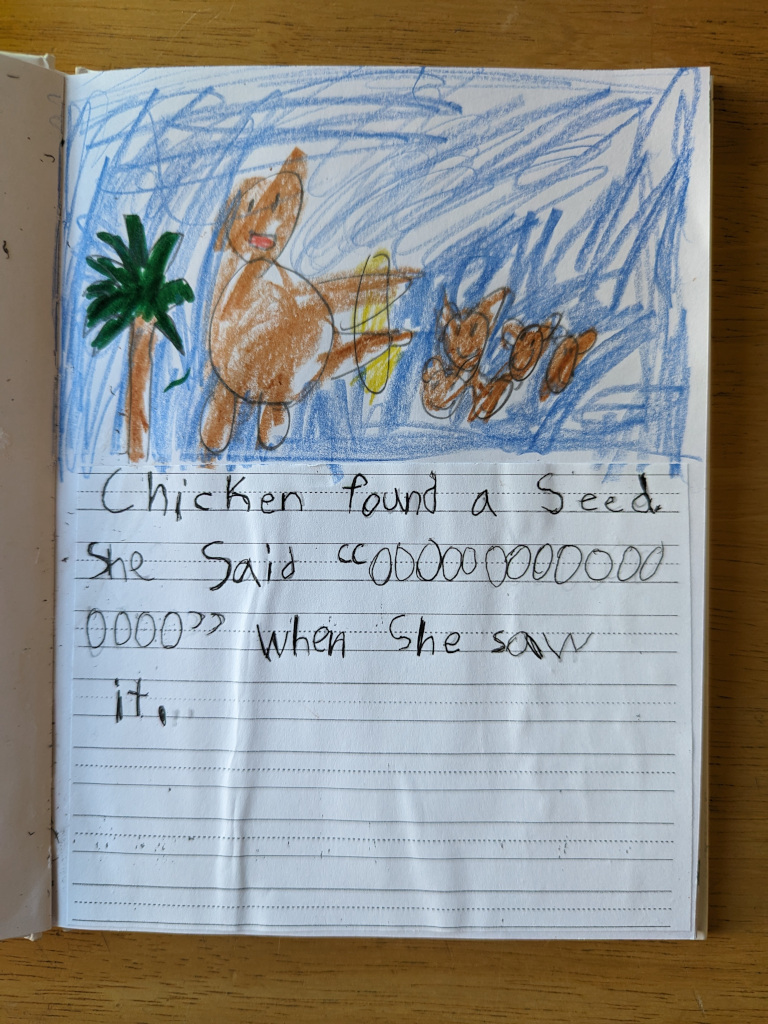 Chicken found a Seed.
She Said “OOOOOOOOOOOOO
OOOO” when She saw
it.